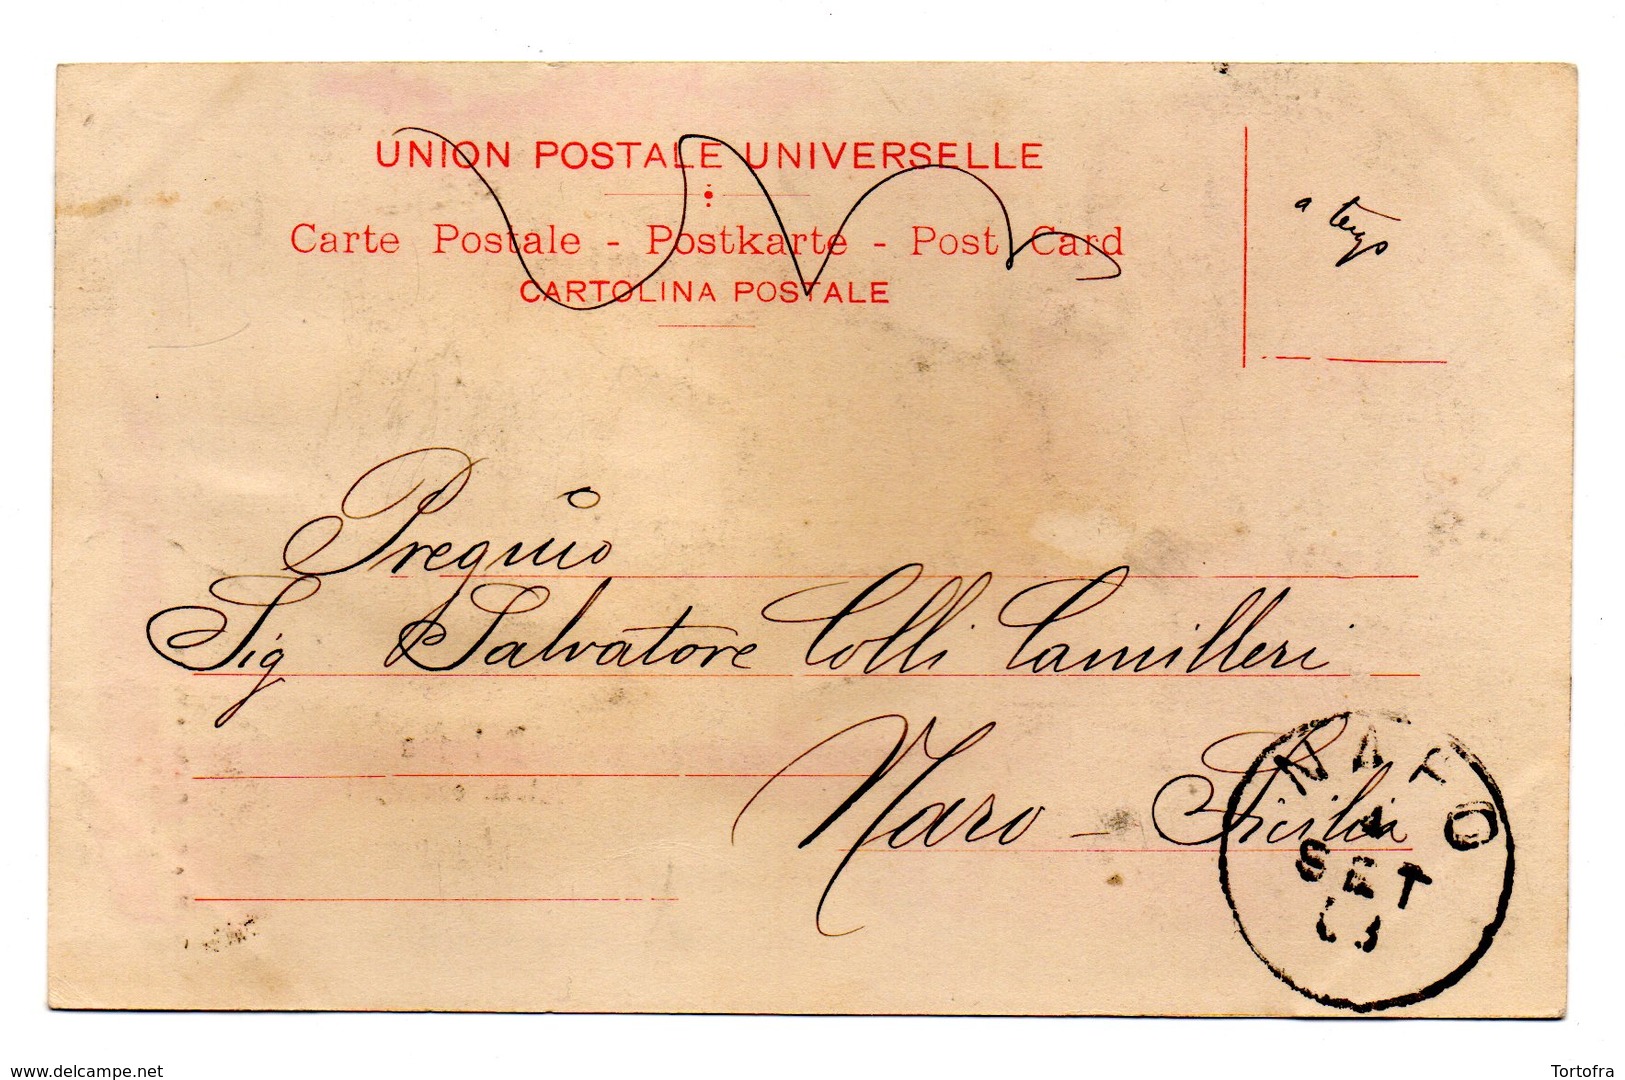 UNION POSTALE UNIVERSELLE
Carte Postale - Postkarte - Post Card
CARTOLINA POSTALE
a tergo
Pregmo
Sig Salvatore Colli Camilleri
Naro - Sicilia
NARO
SET
www.delcampe.net
Tortofra